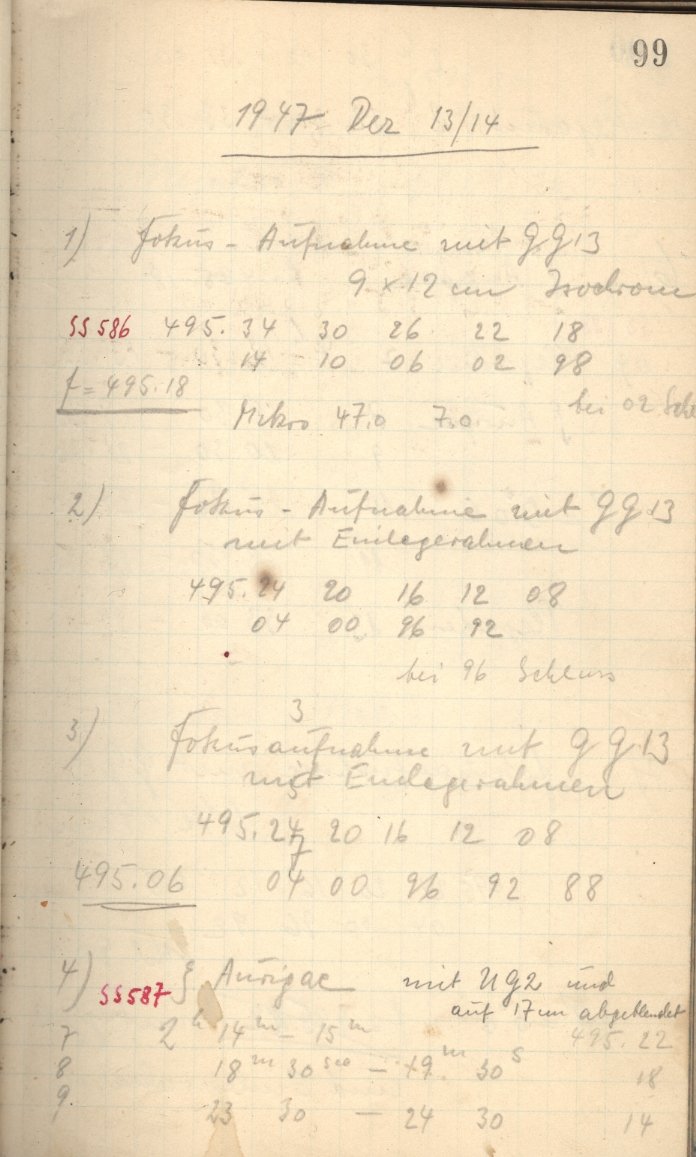 99
1947 Dez 13/14
1) Fokus - Aufnahme mit GG13
9 x 12 cm Isochrom
SS 586 495. 34 30 26 22 18
14 10 06 02 98
f = 495.18 bei 02
Mikro 47.0 7.0
2) Fokus - Aufnahme mit GG 13
mit Einlegerahmen
495. 24 20 16 12 08
04 00 96 92
bei 96 Schluss
3
3) Fokusaufnahme mit GG13
mit Einlegerahmen
495. 20 16 12 08
495.06 04 00 96 92 88
4) SS587 Aurigae mit UG2 und
auf 17 cm abgeblendet
7 2h 14m - 15m 495. 22
8 18m 30sec - 19m 30s 18
9. 23 30 - 24 30 14